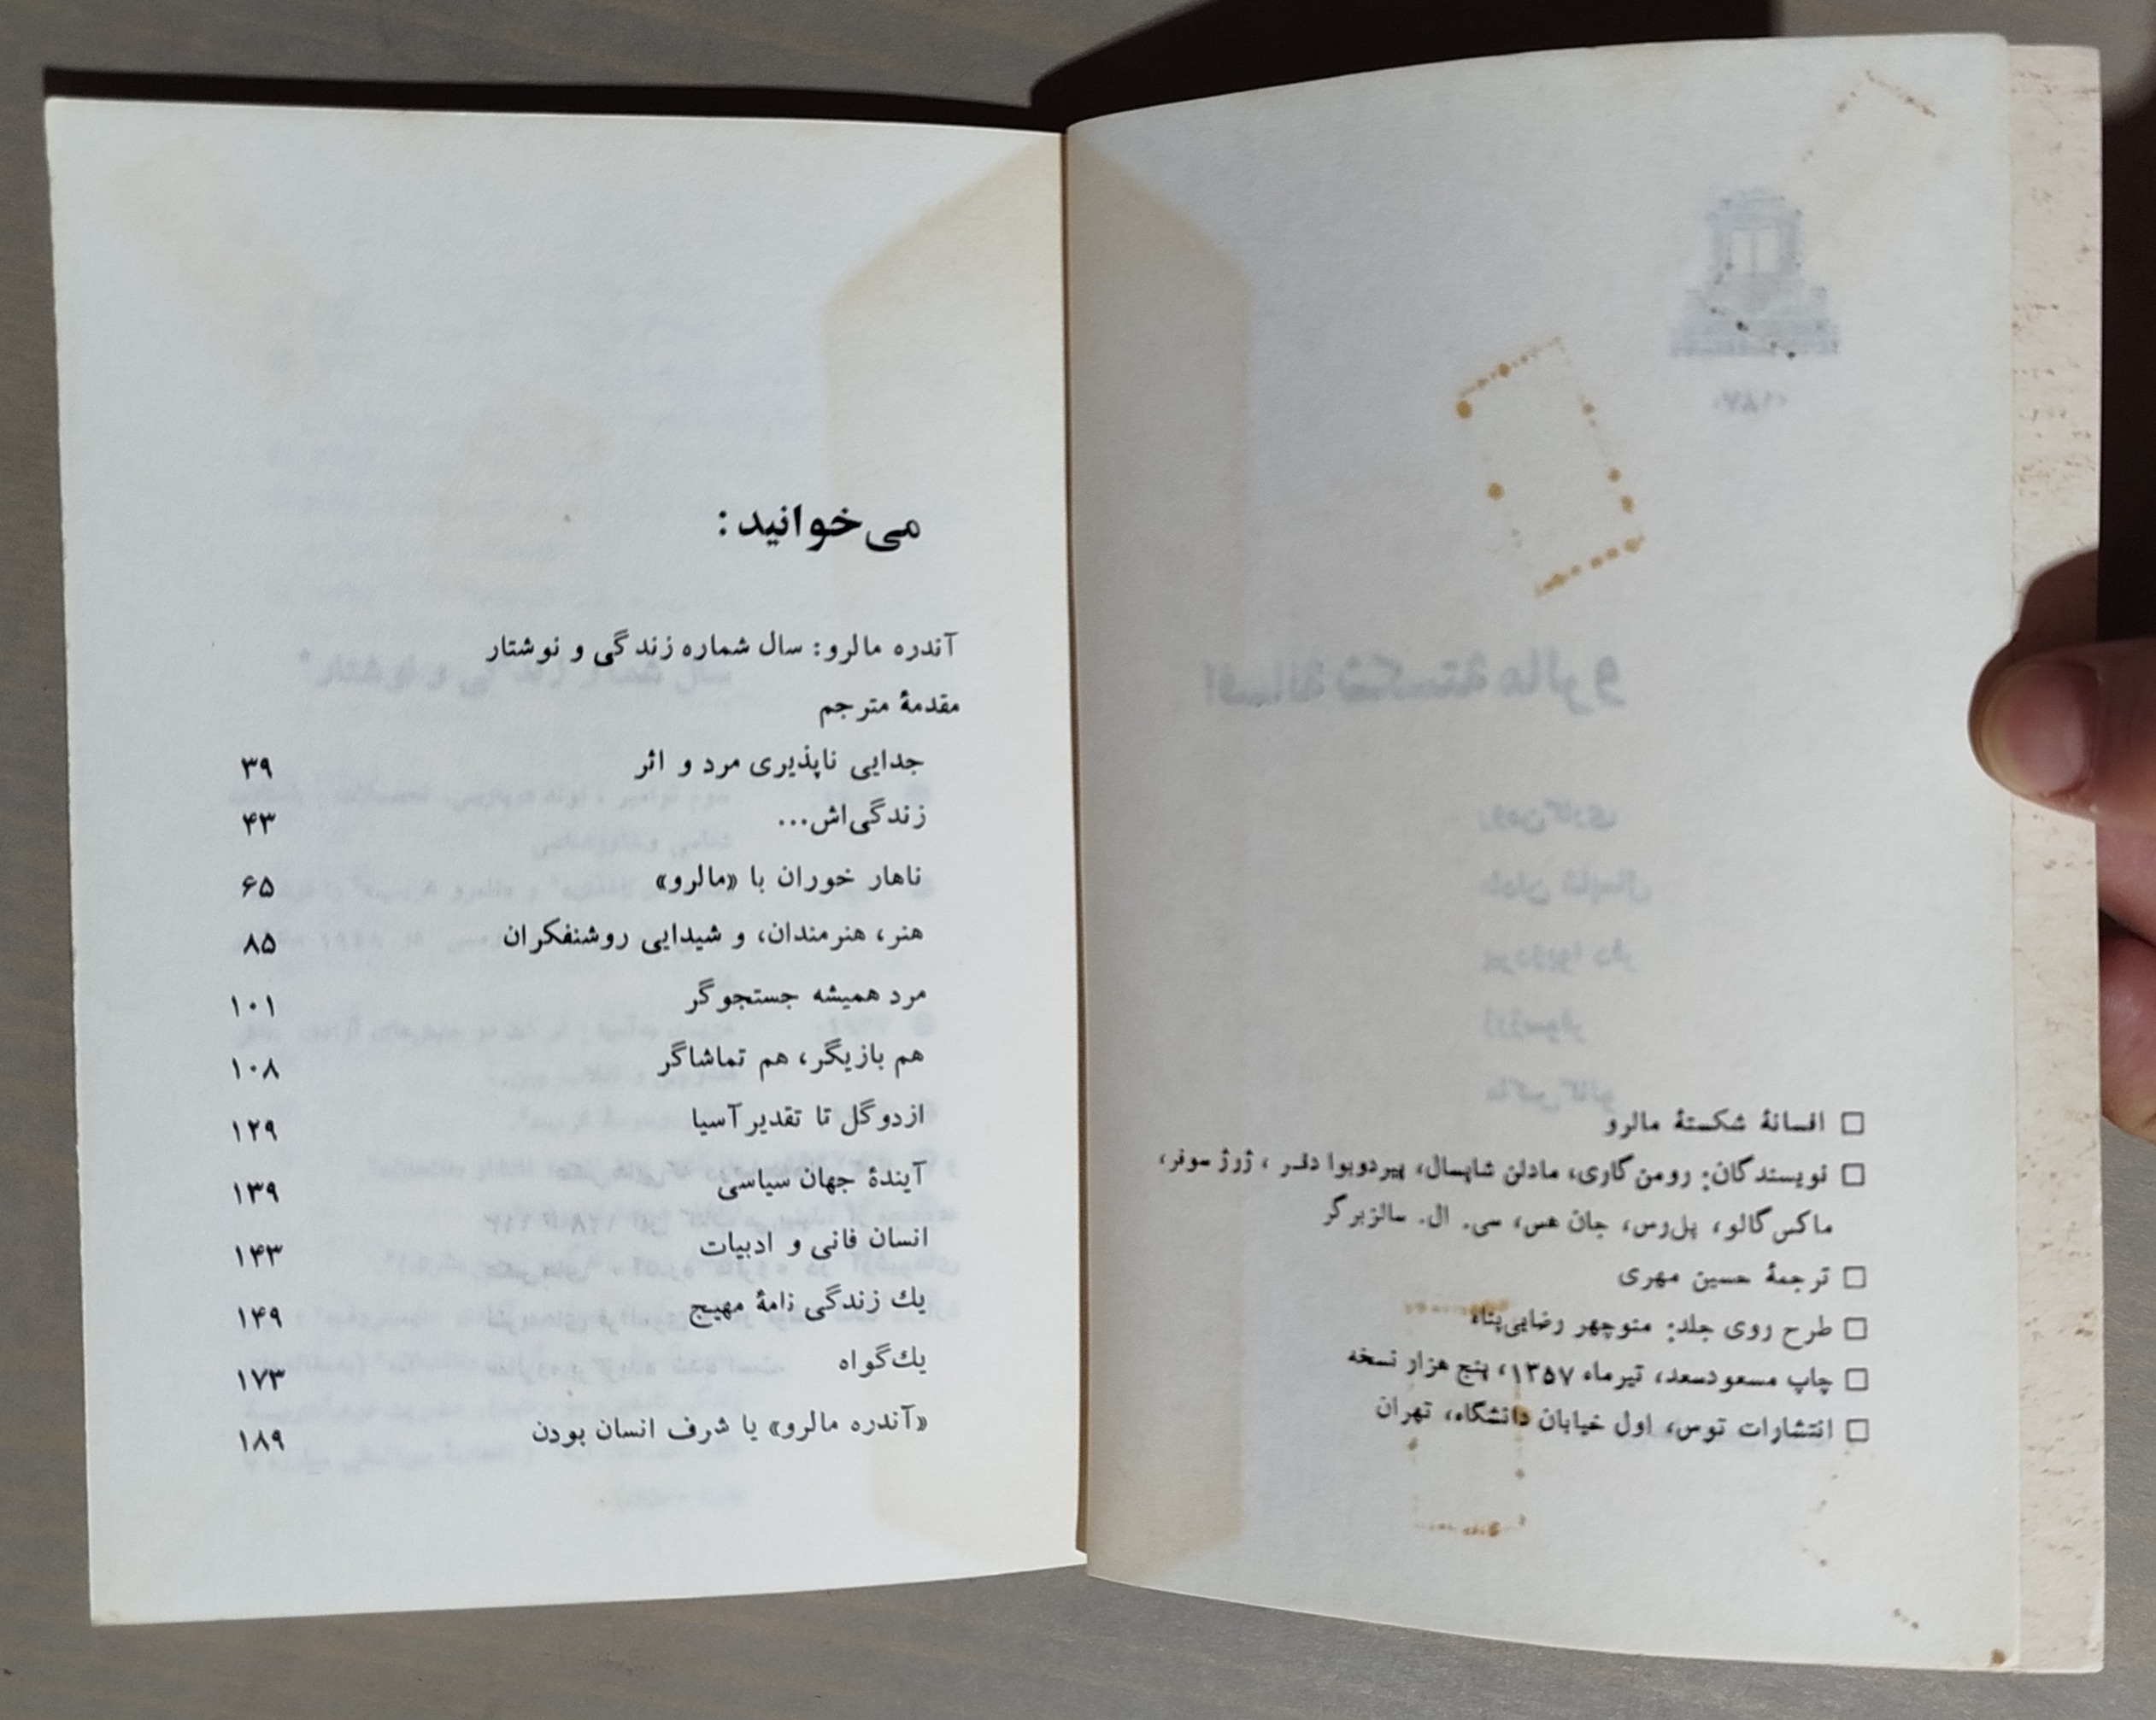 □ افسانهٔ شکستهٔ مالرو
□ نویسندگان: رومن‌گاری، مادلن شاپسال، پیردوبوا دفر، ژرژ سوفر،
ماکس‌گالو، پل‌رس، جان هس، سی. ال. سالزبرگر
□ ترجمهٔ حسین مهری
□ طرح روی جلد: منوچهر رضایی‌پناه
□ چاپ مسعودسعد، تیرماه ۱۳۵۷، پنج هزار نسخه
□ انتشارات توس، اول خیابان دانشگاه، تهران
می‌خوانید:
آندره مالرو: سال شماره زندگی و نوشتار
مقدمهٔ مترجم
جدایی ناپذیری مرد و اثر ۳۹
زندگی‌اش... ۴۳
ناهار خوران با «مالرو» ۶۵
هنر، هنرمندان، و شیدایی روشنفکران ۸۵
مرد همیشه جستجوگر ۱۰۱
هم بازیگر، هم تماشاگر ۱۰۸
ازدوگل تا تقدیر آسیا ۱۲۹
آیندهٔ جهان سیاسی ۱۳۹
انسان فانی و ادبیات ۱۴۳
یك زندگی نامهٔ مهیج ۱۴۹
یك‌گواه ۱۷۳
«آندره مالرو» یا شرف انسان بودن ۱۸۹